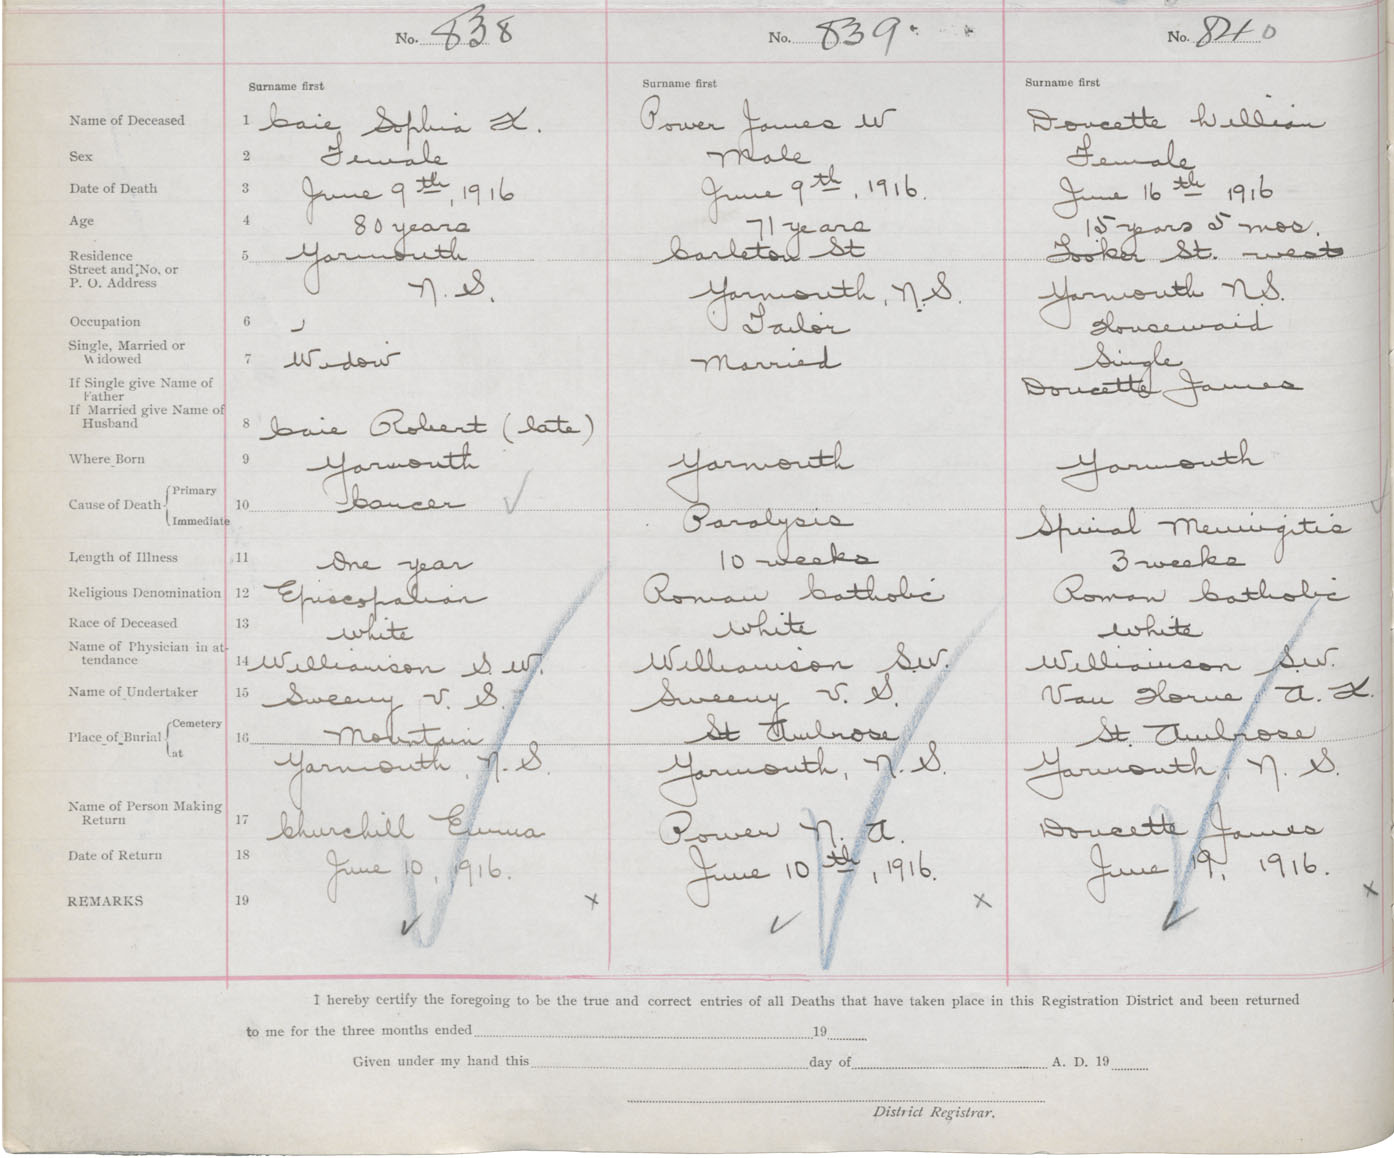 No. 838 No. 839 No. 840
Surname first Surname first Surname first
Name of Deceased 1 Caie Sophia L. Power James W Doucette Lillian
Sex 2 Female Male Female
Date of Death 3 June 9th, 1916 June 9th, 1916. June 16th 1916
Age 4 80 years 71 years 15 years 5 mos.
Residence 5 Yarmouth Carleton St Tooker St. west
Street and No. or
P. O. Address N. S. Yarmouth, N.S. Yarmouth N.S.
Occupation 6 Tailor Housemaid
Single, Married or
Widowed 7 Widow Married Single
If Single give Name of
Father Doucette James
If Married give Name of
Husband 8 Caie Robert (late)
Where Born 9 Yarmouth Yarmouth Yarmouth
Cause of Death { Primary 10 Cancer
Immediate Paralysis Spinal Meningitis
Length of Illness 11 One year 10 weeks 3 weeks
Religious Denomination 12 Episcopalian Roman Catholic Roman Catholic
Race of Deceased 13 White White White
Name of Physician in at-
tendance 14 Williamson S. W. Williamson S.W. Williamson S.W.
Name of Undertaker 15 Sweeny V. S. Sweeny V. S. Van Horne A. L.
Place of Burial { Cemetery 16 Mountain St Ambrose St. Ambrose
at Yarmouth, N. S. Yarmouth, N. S. Yarmouth, N. S.
Name of Person Making
Return 17 Churchill Emma Power N. A. Doucette James
Date of Return 18 June 10, 1916. June 10th, 1916. June 19, 1916.
REMARKS 19 x x x
I hereby certify the foregoing to be the true and correct entries of all Deaths that have taken place in this Registration District and been returned
to me for the three months ended 19
Given under my hand this day of A. D. 19
District Registrar.